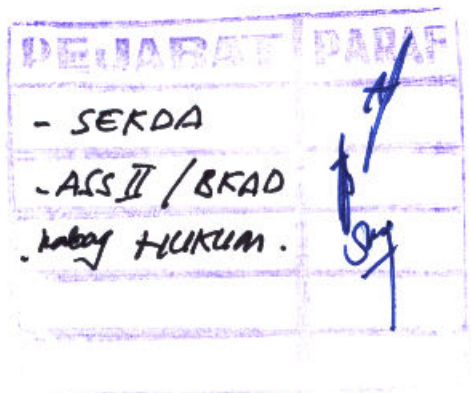 PEJABAT PARAF
- SEKDA
- ASS II / BKAD
. kabag HUKUM.